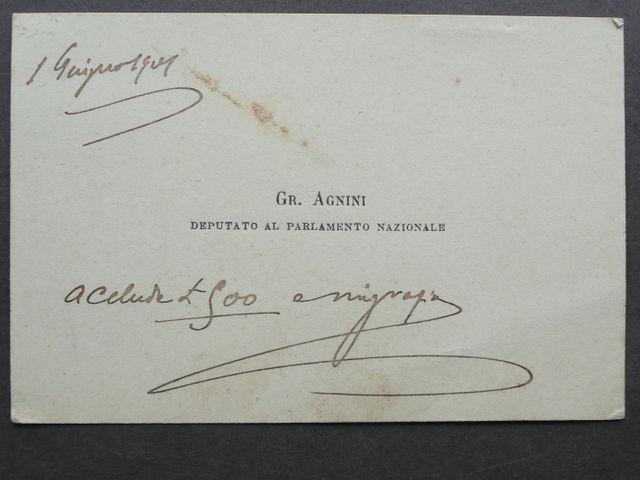 1 Giugno 1901
GR. AGNINI
DEPUTATO AL PARLAMENTO NAZIONALE
acclude £ 500 e ringrazia